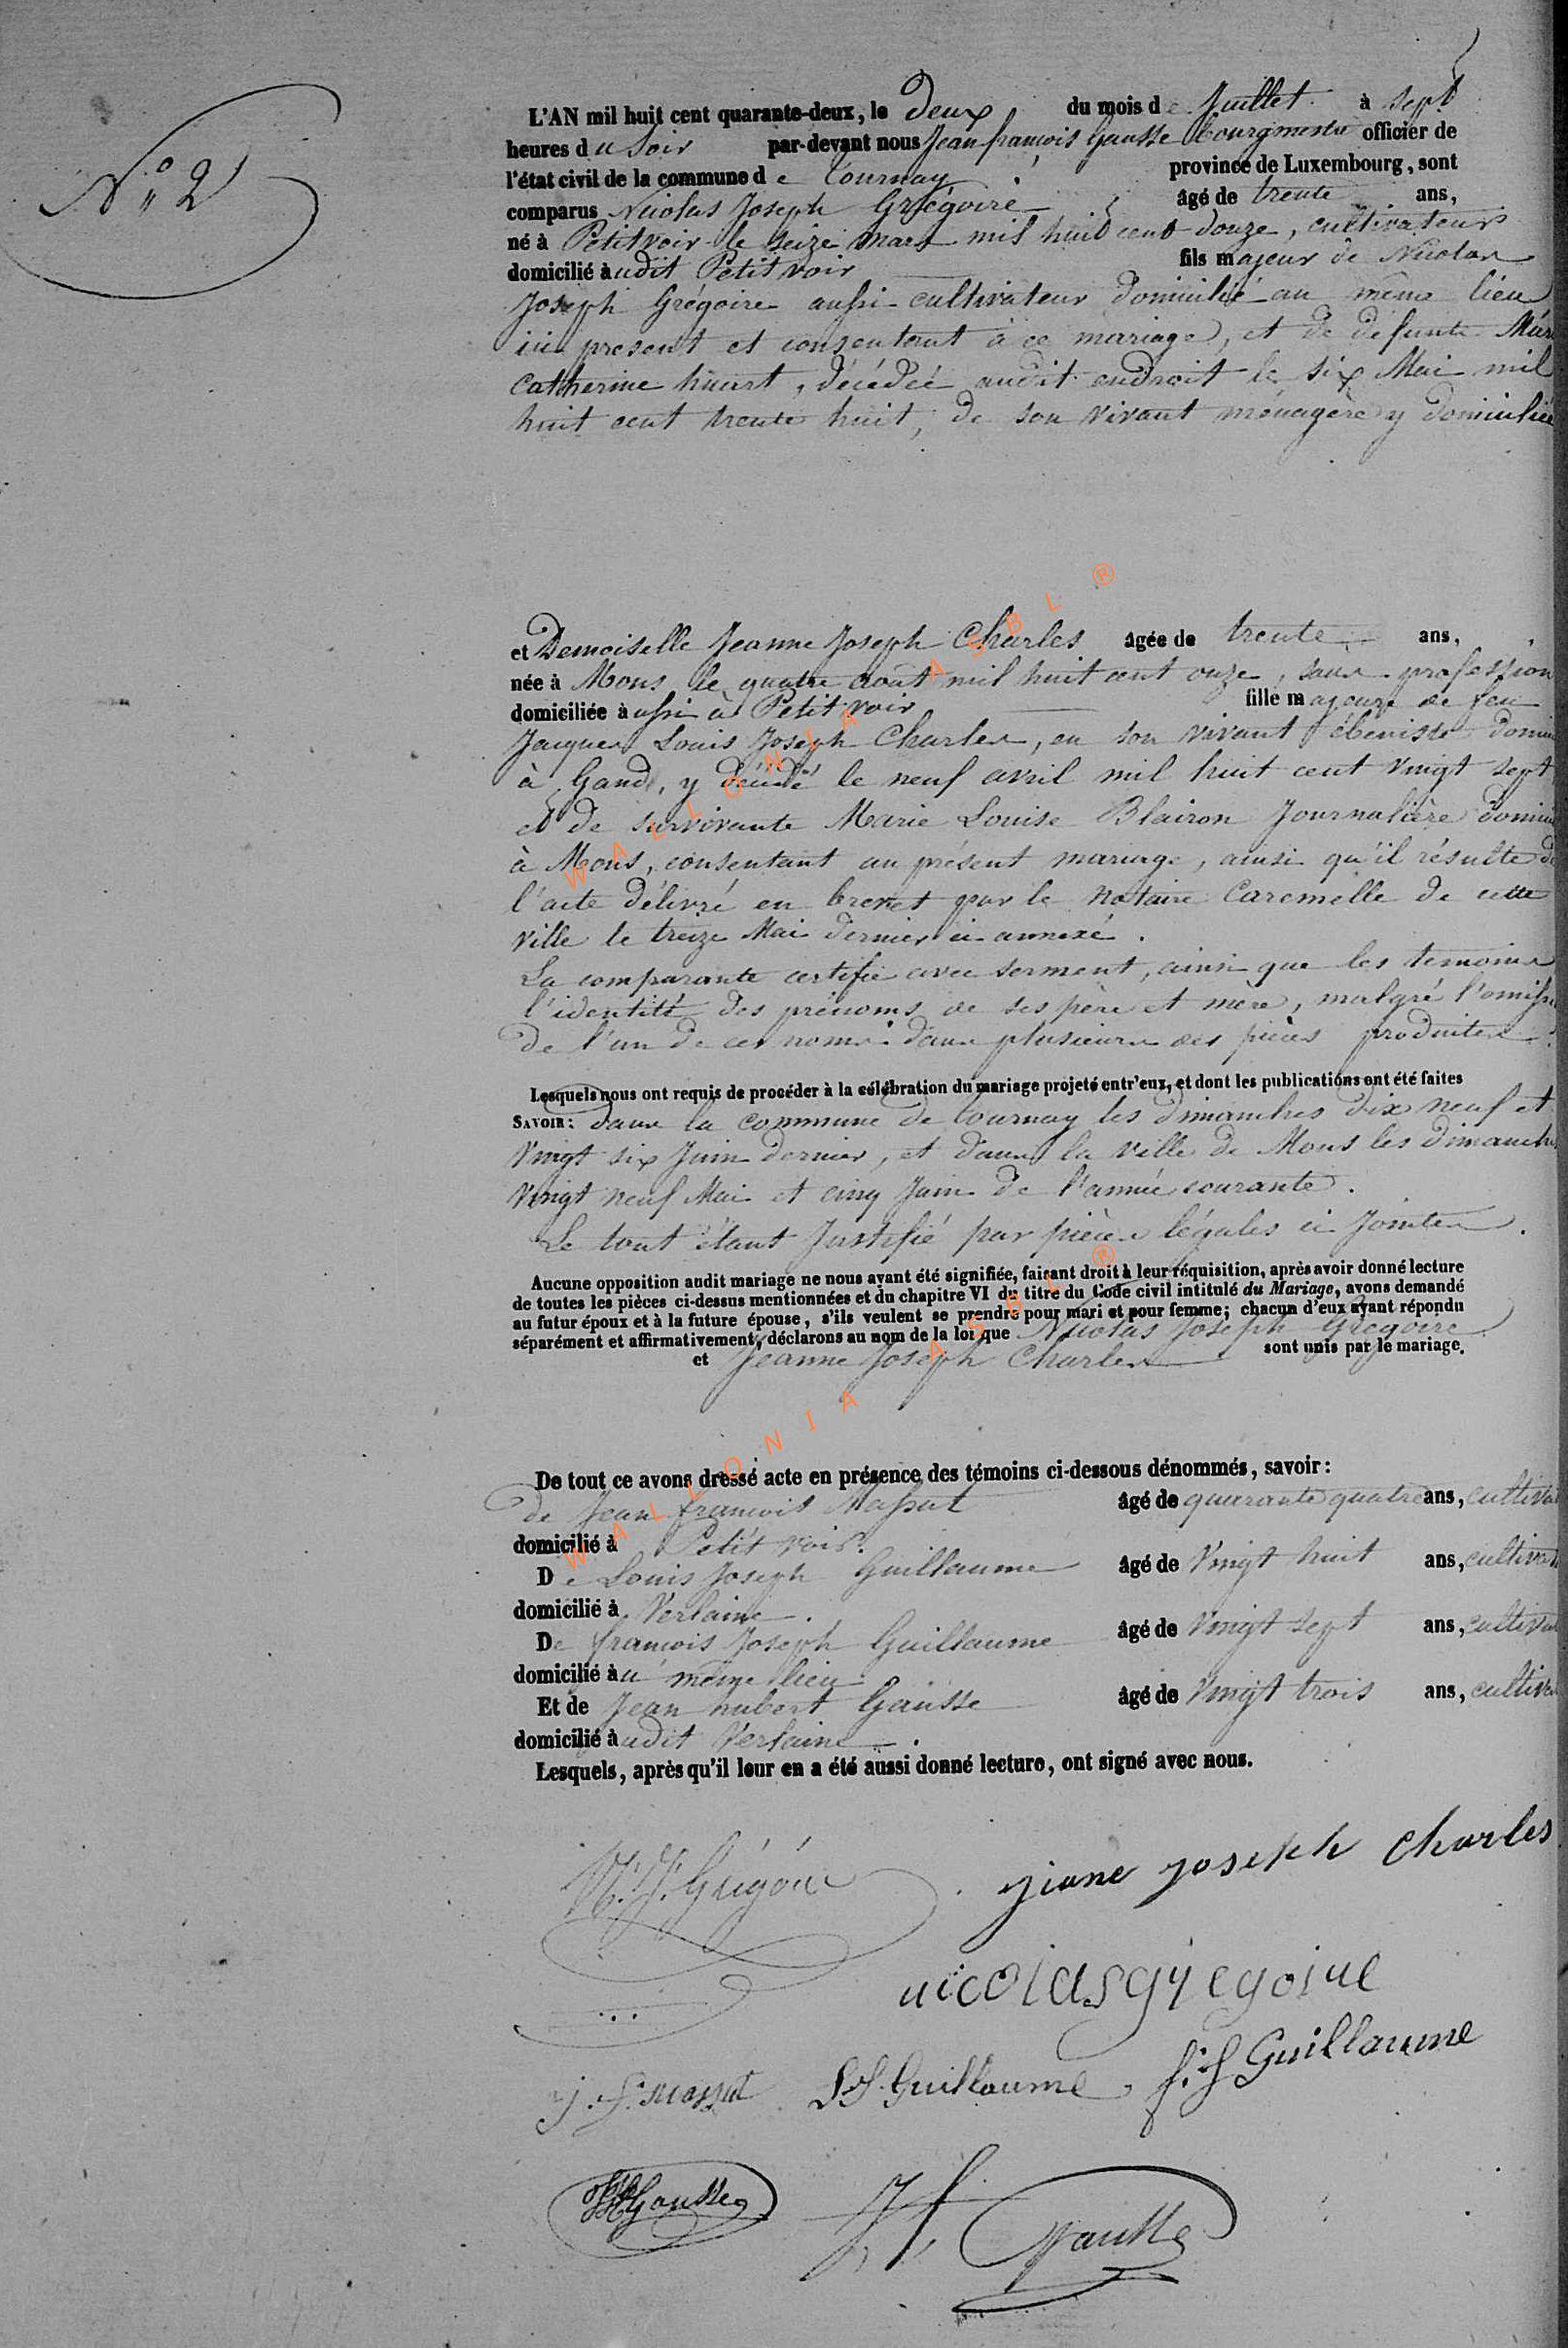 N° 2
L'AN mil huit cent quarante-deux, le Deux du mois de Juillet à sept
heures du Soir par-devant nous Jean françois Gausse bourgmestre officier de
l'état civil de la commune de Tournay province de Luxembourg, sont
comparus Nicolas Joseph Grégoire âgé de trente ans,
né à Petitvoir le seize mars mil huit cent douze, cultivateur
domicilié audit Petitvoir fils majeur de Nicolas
Joseph Grégoire aussi cultivateur domicilié au même lieu
ici present et consentant à ce mariage, et de défunte Marie
Catherine huart, décédée audit endroit le six Mai mil
huit cent trente huit, de son vivant ménagère y domiciliée
et Demoiselle Jeanne Joseph Charles âgée de trente ans,
née à Mons le quatre août mil huit cent onze, sans profession
domiciliée aussi à Petitvoir fille majeure de feu
Jacques Louis Joseph Charles, en son vivant ébeniste domi
à Gand, y décédé le neuf avril mil huit cent vingt sept
et de survivante Marie Louise Blairon Journalière domi
à Mons, consentant au présent mariage, ainsi qu'il résulte de
l'acte délivré en brevet par le Notaire Caremelle de cette
ville le treize Mai dernier ci annexé.
La comparante certifie avec serment, ainsi que les temoins
l'identité des prénoms de ses père et mère, malgré l'omiss
de l'un de ces noms dans plusieurs des pièces produites.
Lesquels nous ont requis de procéder à la célébration du mariage projeté entr'eux, et dont les publications ont été faites
SAVOIR: dans la commune de Tournay les dimanches dix neuf et
Vingt six Juin dernier, et dans la ville de Mons les dimanches
Vingt neuf Mai et cinq Juin de l'année courante.
Le tout étant Justifié par pièces légales ci Jointes.
Aucune opposition audit mariage ne nous ayant été signifiée, faisant droit à leur réquisition, après avoir donné lecture
de toutes les pièces ci-dessus mentionnées et du chapitre VI du titre du Code civil intitulé du Mariage, avons demandé
au futur époux et à la future épouse, s'ils veulent se prendre pour mari et pour femme; chacun d'eux ayant répondu
séparément et affirmativement, déclarons au nom de la loi que Nicolas Joseph Grégoire
et Jeanne Joseph Charles sont unis par le mariage.
De tout ce avons dressé acte en présence des témoins ci-dessous dénommés, savoir:
de Jean françois Massut âgé de quarante quatre ans, cultiva
domicilié à Petit voir.
De Louis Joseph Guillaume âgé de Vingt huit ans, cultivat
domicilié à Verlaine.
De françois Joseph Guillaume âgé de Vingt sept ans, cultiva
domicilié au même lieu
Et de Jean hubert Gausse âgé de Vingt trois ans, cultiva
domicilié audit Verlaine.
Lesquels, après qu'il leur en a été aussi donné lecture, ont signé avec nous.
N. J. Grégoire
jiane joseph charles
nicolas gregoire
J. f. massut L J. Guillaume f. J Guillaume
JH Gausse
J f Gausse
WALLONIA ASBL ®
WALLONIA ASBL ®